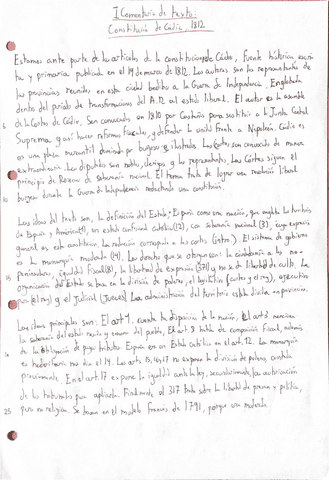 I Comentario de texto:
Constitución de Cádiz 1812
Estamos ante parte de los artículos de la constitución de Cádiz, fuente histórica escri-
ta y primaria publicada en el 19 de marzo de 1812. Los autores son los representantes de
las provincias reunidos en esta ciudad debido a la Guerra de Independencia. Englobada
dentro del período de transformaciones del A.R al estado liberal. El autor es la asamblea
5 de las Cortes de Cádiz. Son convocadas en 1810 por para sustituir a la Junta Central
Suprema y así hacer reformas fiscales, y defender la unidad frente a Napoleón. Cádiz es
es una plaza mercantil dominada por burgueses ilustrados. Las Cortes son convocadas de manera
extraordinaria. Los diputados son nobles, clérigos y los representantes. Las Cortes siguen el
principio de de soberanía nacional. El tema trata de lograr una revolución liberal
10 burguesa durante la Guerra de Independencia redactando una constitución.
Las ideas del texto son, la definición del Estado: España como una nación, que engloba los territorios
de España y América(1), en estado confesional católico(12), con soberanía nacional (3),
general en esta constitución. La redacción corresponde a las cortes (intro). El sistema de gobierno
es la monarquía moderada (14). Los derechos que se otorgan son: la ciudadanía a los
15 peninsulares, igualdad fiscal(8), la libertad de expresión (371) y no se da libertad de culto. La
organización del Estado se basa en la división de poderes, el legislativo (cortes y el rey), ejecutivo
por (el rey) y el judicial (Jueces). La administración del territorio está dividida en provincias.
Las ideas principales son: El art 1, cuenta la disposición de la nación. El art 3 menciona
la soberanía del estado reside y emana del pueblo, El art. 8 habla de composición fiscal, además
20 de la obligación de pagar tributos. España es un Estado Católico en el art. 12. La monarquía
es hereditaria nos dice el 14. Los arts. 15, 16, 17 nos expone la división de poderes, contada
previamente. En el art. 17 expone la igualdad ante la ley, secundariamente, la autorización
de los tribunales para aplicarla. Finalmente, el 317 trata sobre la libertad de prensa y política,
25 pero no religión. Se basan en el modelo francés de 1791, porque una moderada